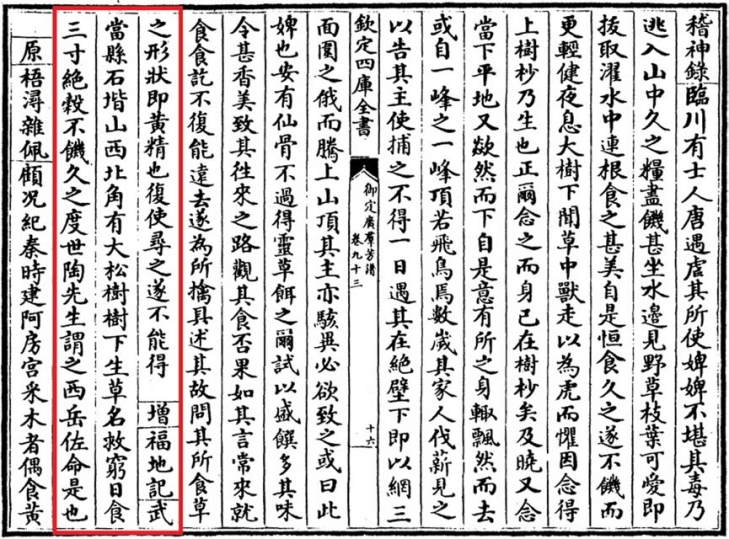 稽神錄臨川有士人唐遇虐其所使婢婢不堪其毒乃
逃入山中久之糧盡饑甚坐水邊見野草枝葉可愛即
拔取濯水中連根食之甚美自是恒食久之遂不饑而
更輕健夜息大樹下聞草中獸走以為虎而懼因念得
上樹杪乃生也正爾念之而身已在樹杪矣及曉又念
當下平地又歘然而下自是意有所之身輙飄然而去
或自一峰之一峰頂若飛鳥焉數歲其家人伐薪見之
以告其主使捕之不得一日遇其在絶壁下即以網三
欽定四庫全書
御定廣羣芳譜
卷九十三
十六
面圍之俄而騰上山頂其主亦駭異必欲致之或曰此
婢也安有仙骨不過得靈草餌之爾試以盛饌多其味
令甚香美致其徃來之路觀其食否果如其言常來就
食食訖不復能遠去遂為所擒具述其故問其所食草
之形狀即黄精也復使尋之遂不能得 增福地記武
當縣石堦山西北角有大松樹樹下生草名救窮日食
三寸絶穀不饑久之度世陶先生謂之西岳佐命是也
原梧潯雜佩顧况紀秦時建阿房宫采木者偶食黄